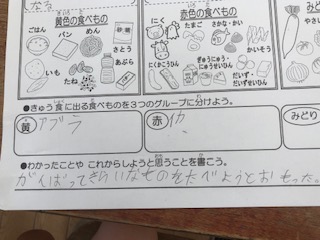 なる
黄色の食べもの
ごはん
パン
めん
さとう
あぶら
いも
たね
赤色の食べもの
にく
たまご
さかな・かい
かいそう
ぎゅうにゅう・にゅうせいひん
だいず・だいずせいひん
みど
やさい
●きゅう食に出る食べものを3つのグループに分けよう。
黄 アブラ
赤 イカ
みどり
●わかったことや これからしようと思うことを書こう。
がんばってきらいなものをたべようとおもった。